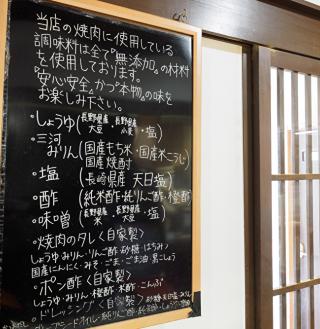 当店の焼肉に使用している
調味料は全て『無添加』の材料
を使用しております。
『安心安全』かつ『本物』の味を
お楽しみ下さい。
・しょうゆ(長野県産大豆・長野県産小麦・塩)
・三河みりん(国産もち米・国産米こうじ
国産焼酎)
・塩(長崎県産 天日塩)
・酢(純米酢・純りんご酢・橙酢)
・味噌(長野県産米・長野県産大豆・塩)
・焼肉のタレ<自家製>
しょうゆ・みりん・りんご酢・砂糖・はちみつ
国産にんにく・みそ・ごま・ごま油・黒こしょう
・ポン酢<自家製>
しょうゆ・みりん・橙酢・米酢・こんぶ
・ドレッシング<自家製>